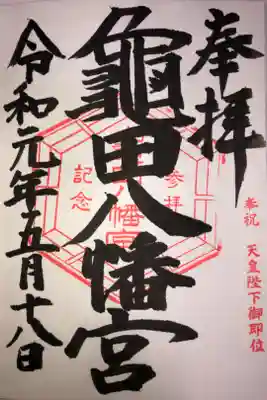 奉拝
奉祝 天皇陛下御即位
龜田八幡宮
参拝
記念
令和元年五月十八日